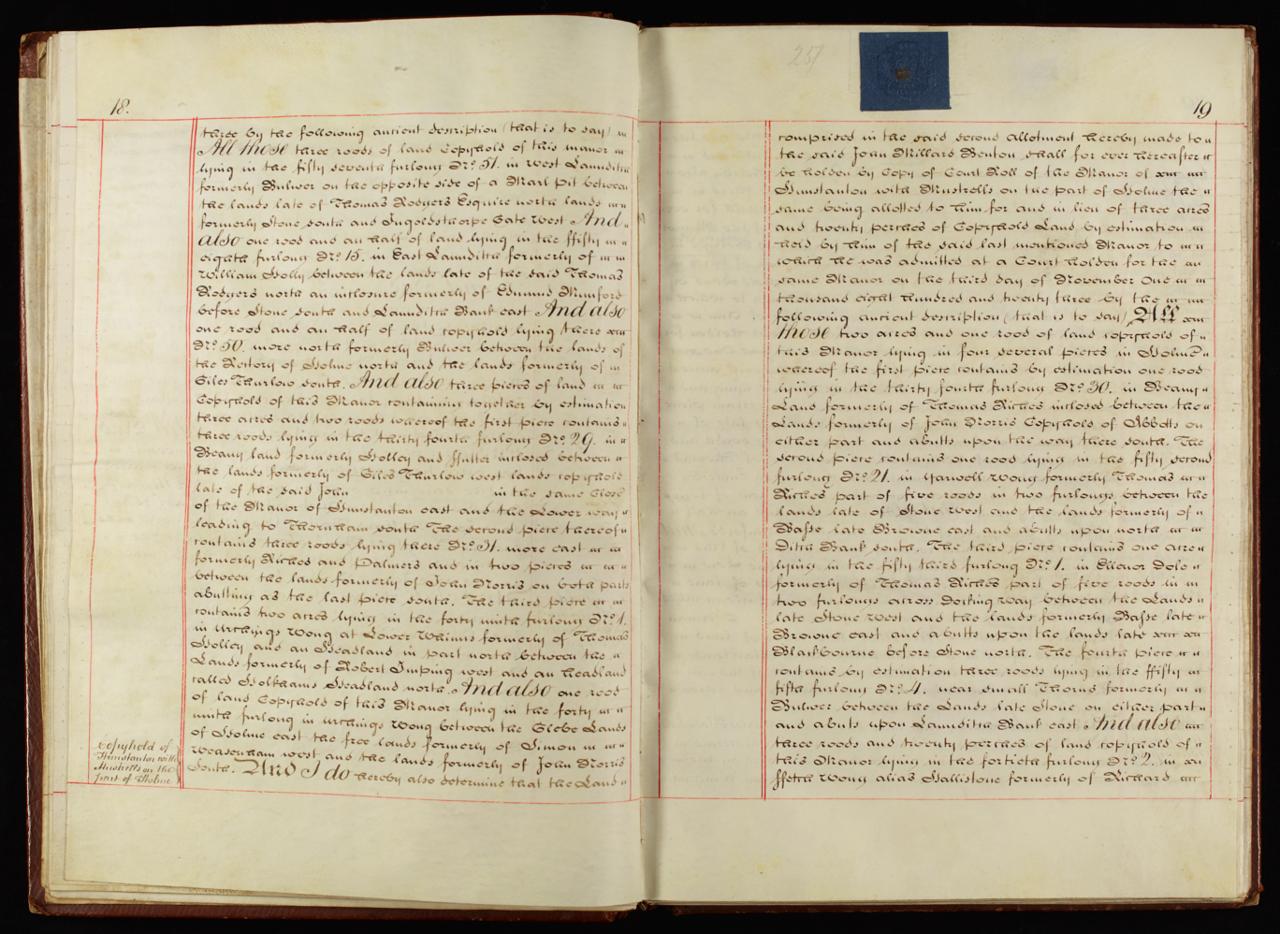 18.
three by the following ancient description (that is to say)
All those three roods of land Copyhold of this manor
lying in the fifty seventh furlong No. 51. in West Launditch
formerly Bulwer on the opposite side of a Marl Pit between
the lands late of Thomas Rodgers Esquire north lands
formerly Stone south and Ingoldsthorpe Gate West And
also one rood and an half of land lying in the ffifty
eighth furlong No. 15. in East Launditch formerly of
William Holly between the lands late of the said Thomas
Rodgers north an inclosure formerly of Edmund Mumford
before Stone south and Launditch Bank east And also
one rood and an half of land copyhold lying there
No. 50. more north formerly Bulwer between the lands of
the Rectory of Holme north and the lands formerly of
Giles Thurlow south. And also three pieces of land
Copyhold of this Manor containing together by estimation
three acres and two roods whereof the first piece contains
three roods lying in the thirty fourth furlong No. 29. in
Beany land formerly Holley and inclosed between
the lands formerly of Giles Thurlow west lands copyhold
late of the said John in the same Close
of the Manor of Hunstanton east and the Lower way
leading to Thornham south The second piece thereof
contains three roods lying there No. 31. more east
formerly Riches and Palmers and in two pieces
between the lands formerly of John Norris on both parts
abutting as the last piece south. The third piece
contains two acres lying in the forty ninth furlong No. 1.
in Urchings Wong at Lower Whinns formerly of Thomas
Holley and an Headland in part north between the
Lands formerly of Robert Imping west and an headland
called Holkhams Headland north. And also one rood
of land Copyhold of this Manor lying in the forty
ninth furlong in Urchings Wong between the Glebe Lands
of Holme east the free lands formerly of Simon
Weasenham west and the lands formerly of John Norris
south. And I do hereby also determine that the Land
Copyhold of
Hunstanton with
Mustrells on the
part of Holme
251
19
comprised in the said second allotment hereby made to
the said John Millard Benton shall for ever thereafter
be holden by Copy of Court Roll of the Manor of
Hunstanton with Mustrells on the part of Holme the
same being allotted to him for and in lieu of three acres
and twenty perches of Copyhold Land by estimation
held by him of the said last mentioned Manor to
which he was admitted at a Court holden for the
same Manor on the third day of November One
thousand eight hundred and twenty three by the
following ancient description (that is to say) All
those two acres and one rood of land copyhold of
this Manor lying in four several pieces in Holme
whereof the first piece contains by estimation one rood
lying in the thirty fourth furlong No. 30. in Beany
Land formerly of Thomas Riches inclosed between the
Lands formerly of John Norris Copyhold of Abbotts on
either part and abutts upon the way there south. The
second piece contains one rood lying in the fifty second
furlong No. 21. in Yarwell Wong formerly Thomas
Riches part of five roods in two furlongs between the
lands late of Stone west and the lands formerly of
Basse late Browne east and abutts upon north
Ditch Bank south. The third piece contains one acre
lying in the fifty third furlong No. 1. in Ellenor Dole
formerly of Thomas Riches part of five roods in
two furlongs across Docking way between the Lands
late Stone west and the lands formerly Basse late
Browne east and abutts upon the lands late
Blackbourne before Stone north. The fourth piece
contains by estimation three roods lying in the ffifty
fifth furlong No. 4. near small Thorns formerly
Bulwer between the Lands late Stone on either part
and abuts upon Launditch Bank east And also
three roods and twenty perches of land copyhold of
this Manor lying in the fortieth furlong No. 2. in
Wong alias Hallstone formerly of Richard